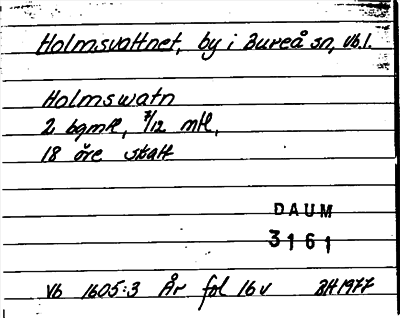 Holmsvattnet, by i Bureå sn, Vb.l.
Holmswatn
2 bgmtl, 7/12 mtl,
18 öre skatt
DAUM
3161
Vb 1605:3 År fol 16v BH1977